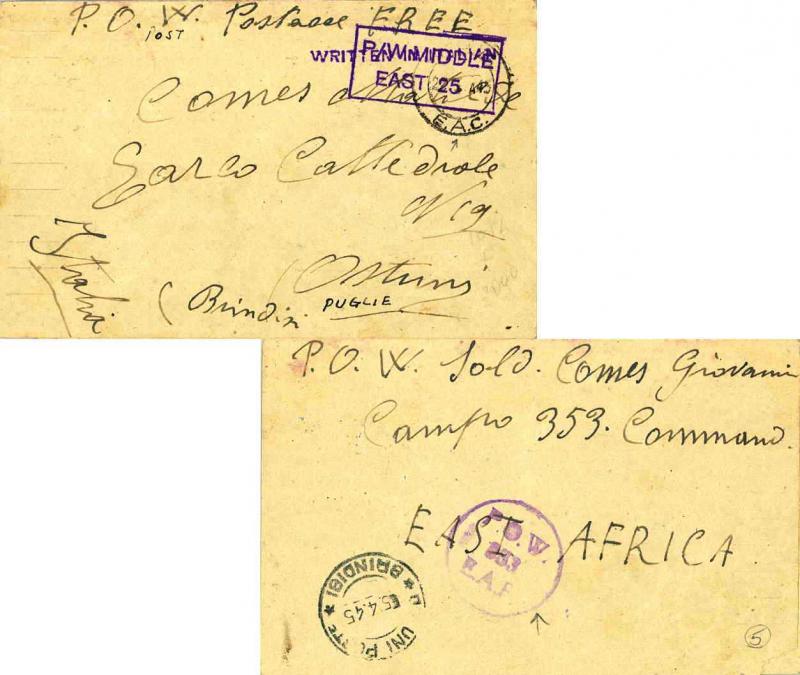 P.O.W. Postage FREE
POST
WRITTEN IN ITALIAN
P/W MIDDLE
EAST 25
E.A.C.
Comes
Largo Cattedrale
Ostuni
PUGLIE
(Brindisi
Italia
P.O.W. Sold. Comes Giovanni
Campo 353. Command.
EAST AFRICA
P.O.W.
353
E.A.
BRINDISI
5.4.45
5